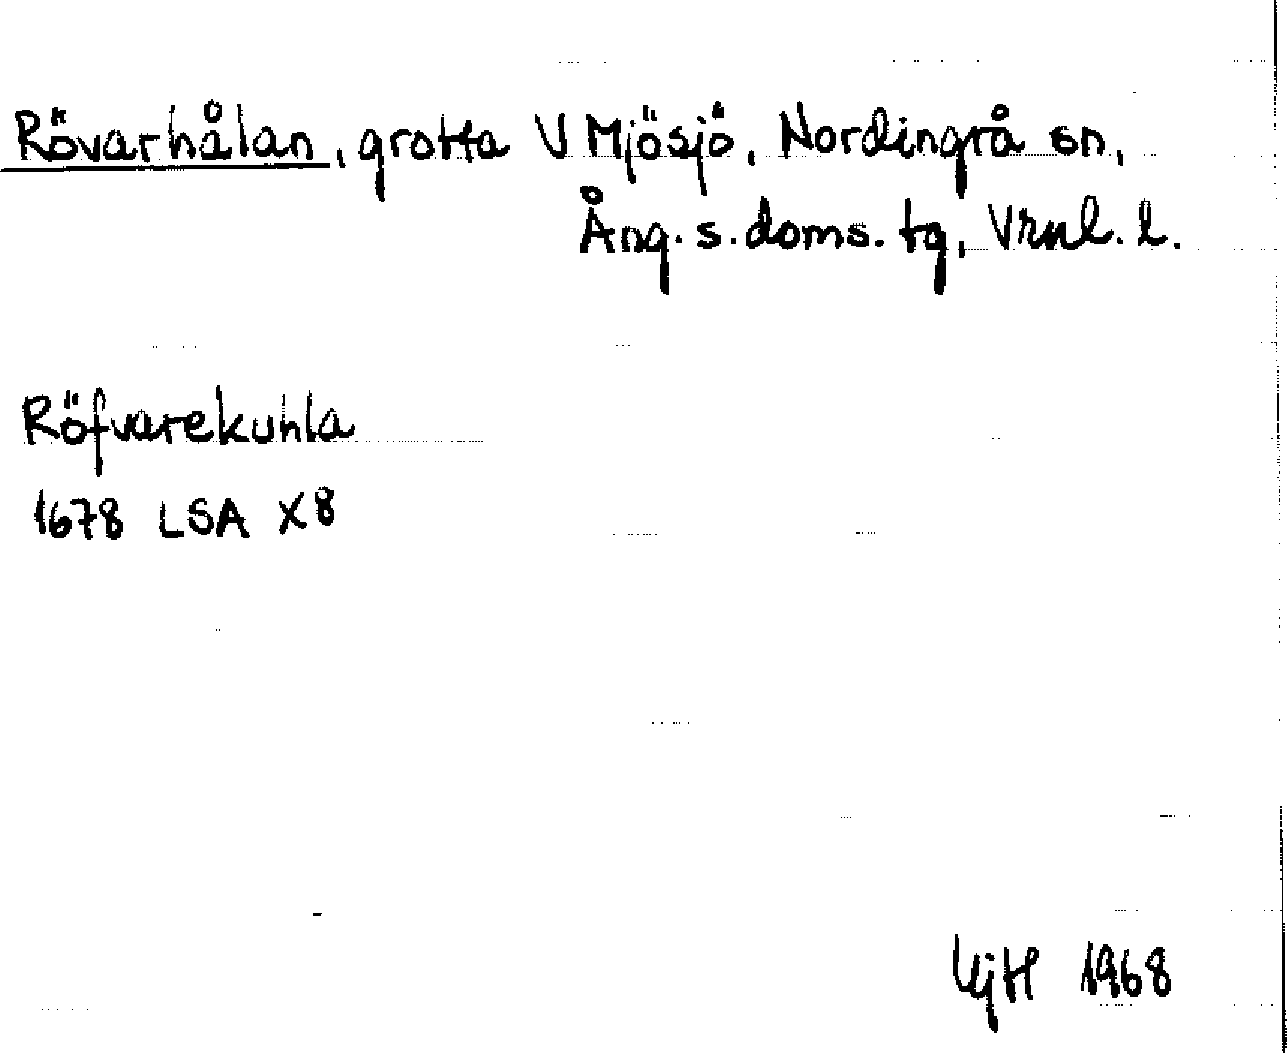 Rövarhålan, grotta V Mjösjö, Nordingrå sn,
Ång. s. doms. tg, Vrnl. l.
Röfvarekuhla
1678 LSA X8
1968